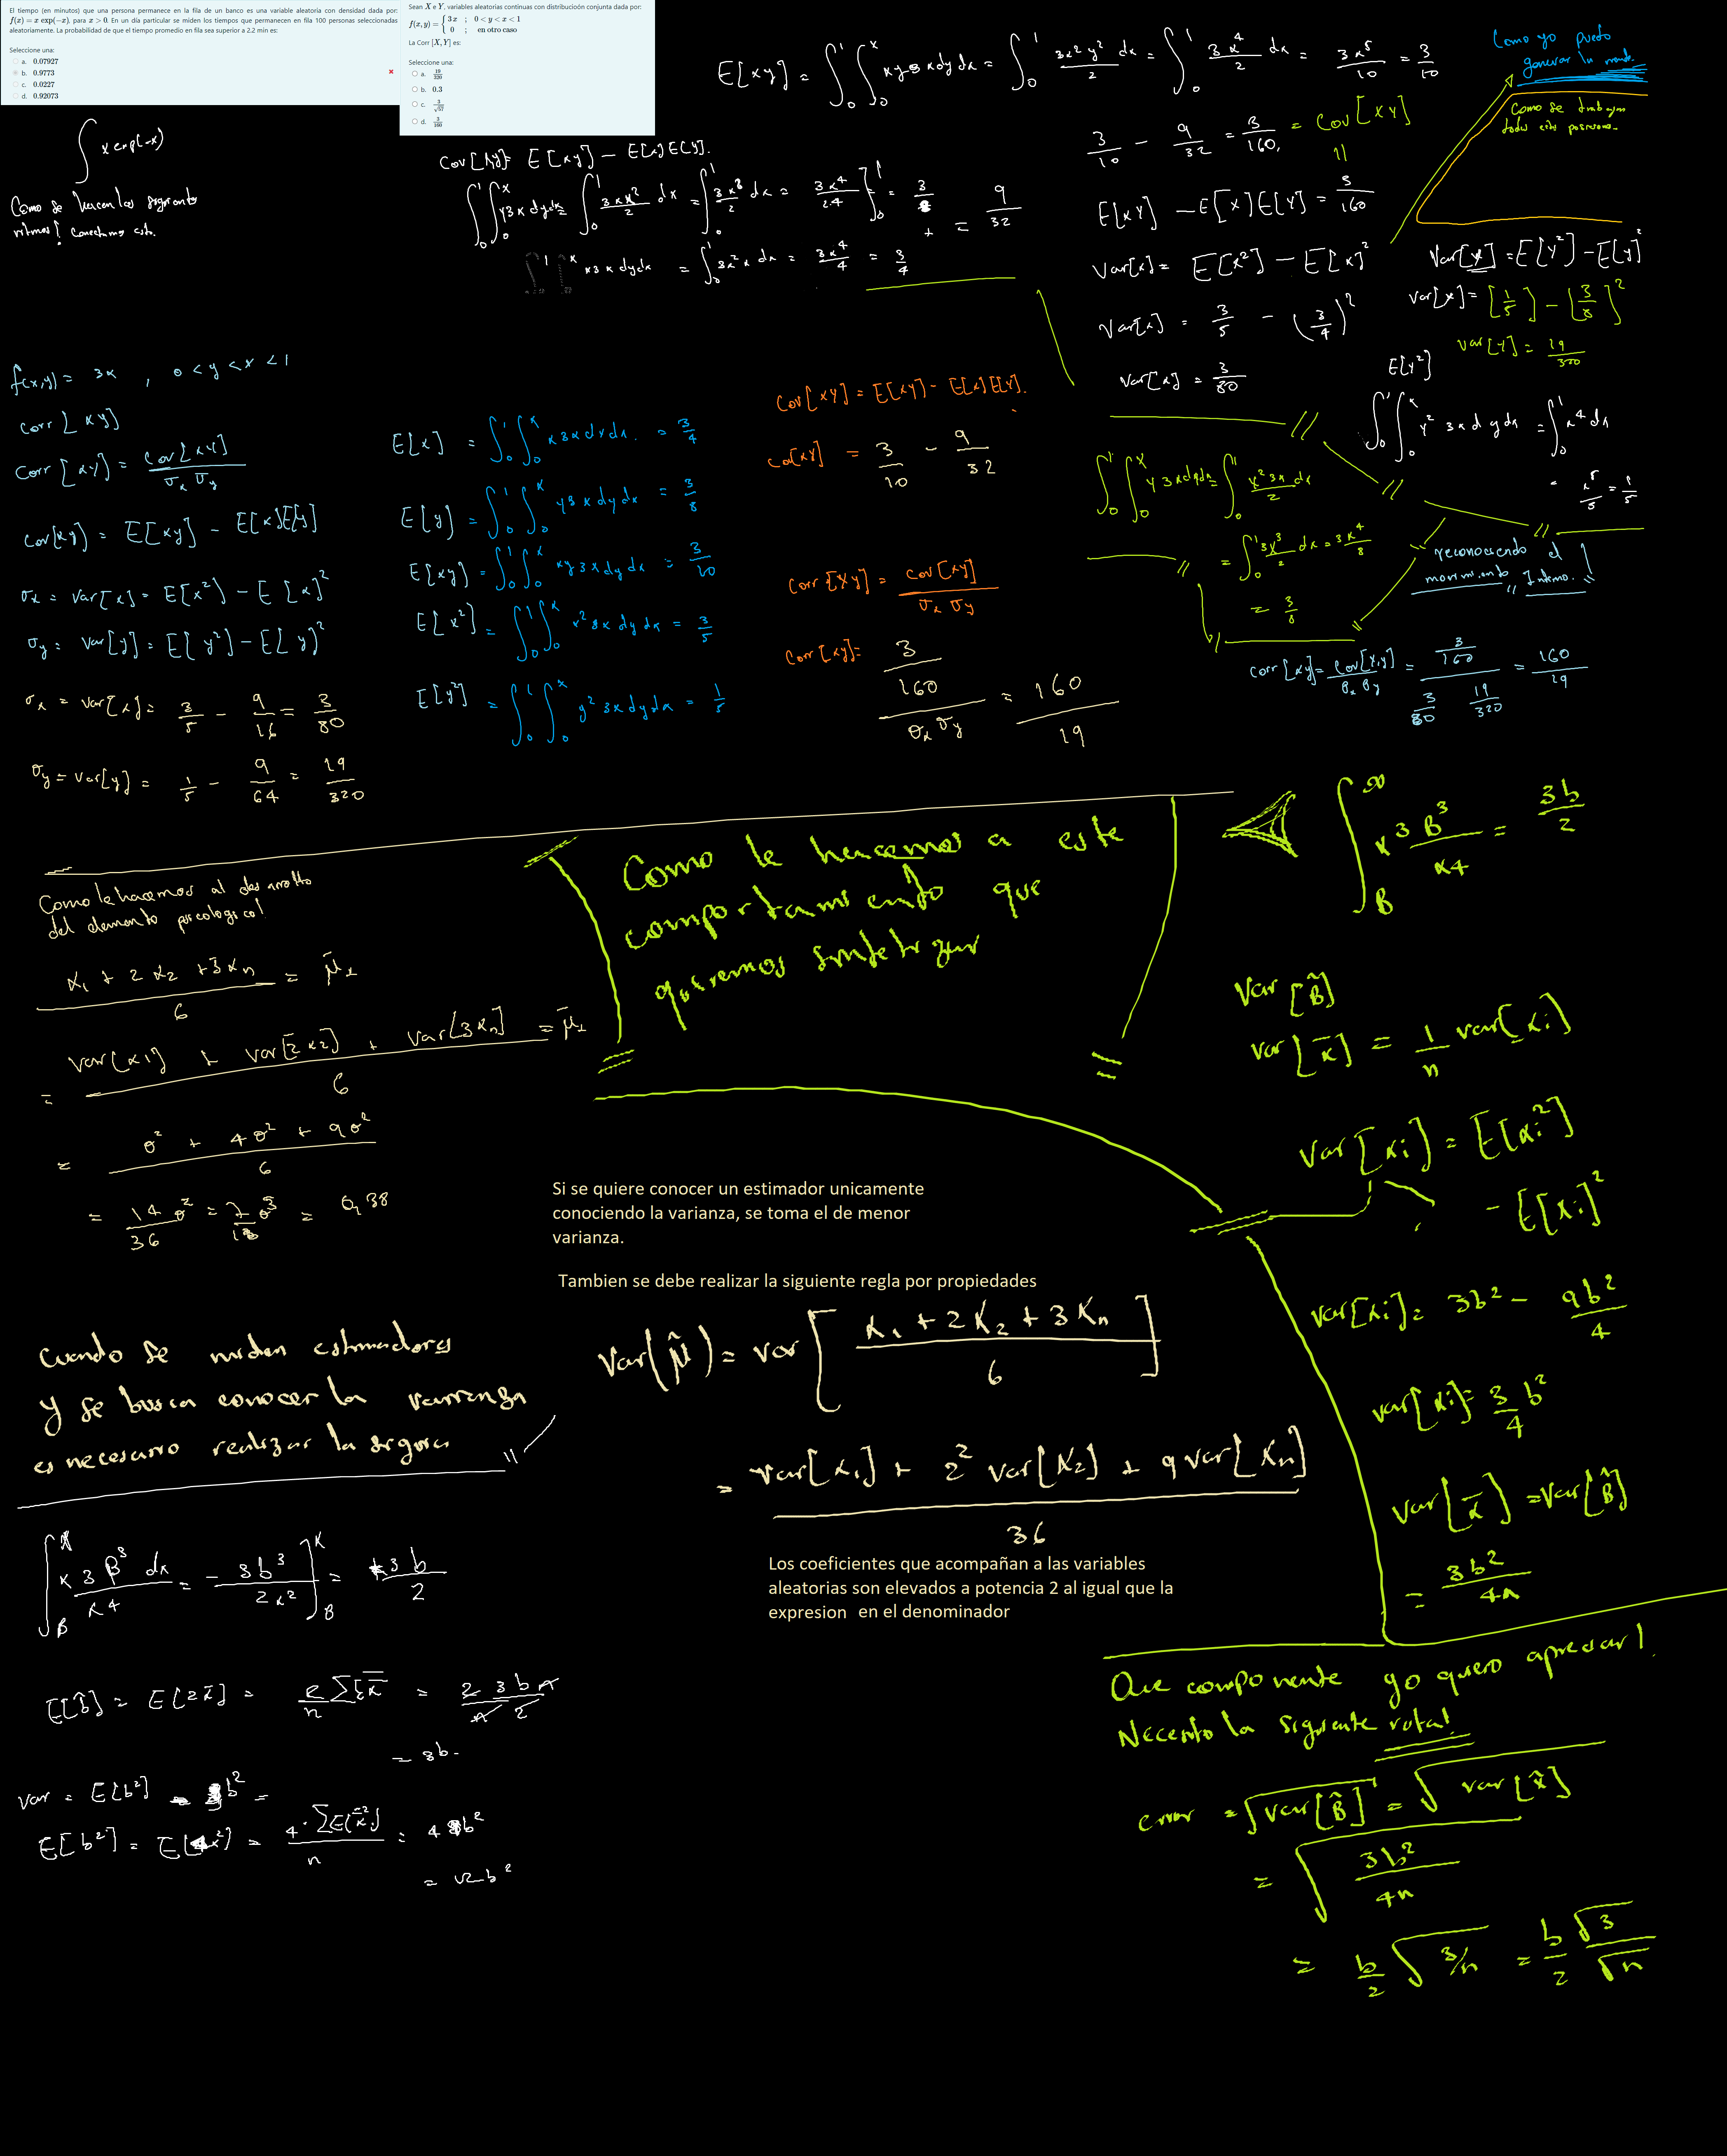 El tiempo (en minutos) que una persona permanece en la fila de un banco es una variable aleatoria con densidad dada por:
f(x) = x exp(−x), para x > 0. En un día particular se miden los tiempos que permanecen en fila 100 personas seleccionadas
aleatoriamente. La probabilidad de que el tiempo promedio en fila sea superior a 2.2 min es:
Seleccione una:
a. 0.07927
b. 0.9773
c. 0.0227
d. 0.92073
Sean X e Y, variables aleatorias continuas con distribucioón conjunta dada por:
f(x, y) = { 3x ; 0 < y < x < 1
0 ; en otro caso
La Corr [X, Y] es:
Seleccione una:
a. 19/320
b. 0.3
c. 3/√57
d. 3/160
∫ x exp(-x)
Como se hacen los siguientes
ritmos? conectamos esto.
E[xy] = ∫₀¹ ∫₀ˣ xy3x dy dx = ∫₀¹ 3x²y²/2 dx = ∫₀¹ 3x⁴/2 dx = 3x⁵/10 = 3/10
Como yo puedo
generar la mente.
Como se trabajan
todas estas posiciones.
Cov[x,y] = E[xy] − E[x]E[y].
∫₀¹ ∫₀ˣ y3x dy dx = ∫₀¹ 3xx²/2 dx = ∫₀¹ 3x³/2 dx = 3x⁴/24 ]₀¹ = 3/8
= 9/32
∫ ∫ˣ x3x dy dx = ∫₀¹ 3x²x dx = 3x⁴/4 = 3/4
3/10 − 9/32 = 3/160, = Cov[xY]
E[xY] − E[x]E[Y] = 3/160
Var[x] = E[x²] − E[x]²
Var[x] = 3/5 − (3/4)²
Var[x] = 3/80
Var[Y] = E[Y²] − E[Y]²
Var[Y] = [1/5] − [3/8]²
Var[Y] = 19/320
E[Y²]
∫₀¹ ∫₀ˣ Y² 3x dy dx = ∫₀¹ x⁴ dx
= x⁵/5 = 1/5
f(x,y) = 3x , 0 < y < x < 1
Corr[xy]
Corr[xy] = Cov[xy] / σx σy
Cov[xy] = E[xy] − E[x]E[y]
σx = Var[x] = E[x²] − E[x]²
σy = Var[y] = E[y²] − E[y]²
σx = Var[x] = 3/5 − 9/16 = 3/80
σy = Var[y] = 1/5 − 9/64 = 19/320
E[x] = ∫₀¹ ∫₀ˣ x3x dy dx. = 3/4
E[y] = ∫₀¹ ∫₀ˣ y3x dy dx = 3/8
E[xy] = ∫₀¹ ∫₀ˣ xy3x dy dx = 3/10
E[x²] = ∫₀¹ ∫₀ˣ x²3x dy dx = 3/5
E[y²] = ∫₀¹ ∫₀ˣ y² 3x dy dx = 1/5
Cov[xY] = E[xY] − E[x]E[Y].
Co[xY] = 3/10 − 9/32
Corr[xy] = Cov[xy] / σx σy
Corr[xy] = (3/160) / σx σy = 160/19
∫₀¹ ∫₀ˣ Y 3x dy dx = ∫₀¹ x²3x/2 dx
= ∫₀¹ 3x³/2 dx = 3x⁴/8
= 3/8
reconociendo el
movimiento Interno.
Corr[xy] = Cov[x,y] / σx σy = (3/160) / (3/80 19/320) = 160/19
Como le hacemos al desarrollo
del elemento psicologico!
(x₁ + 2x₂ + 3xn) / 6 = μ̄₁
= (Var[x₁] + Var[2x₂] + Var[3xn]) / 6 = μ̄₁
= (σ² + 4σ² + 9σ²) / 6
= 14σ²/36 = 7σ²/18 = 0,38
Como le hacemos a este
comportamiento que
queremos integrar
∫_B^∞ x 3B³/x4 = 3b/2
Var[B̂]
Var[x̄] = 1/n Var[xi]
Var[xi] = E[xi²]
− E[xi]²
Var[xi] = 3b² − 9b²/4
Var[xi] = 3/4 b²
Var[x̄] = Var[B̂]
= 3b²/4n
Si se quiere conocer un estimador unicamente
conociendo la varianza, se toma el de menor
varianza.
Tambien se debe realizar la siguiente regla por propiedades
Var(μ̂) = Var[ (x₁ + 2x₂ + 3xn) / 6 ]
= (Var[x₁] + 2² Var[x₂] + 9 Var[xn]) / 36
Los coeficientes que acompañan a las variables
aleatorias son elevados a potencia 2 al igual que la
expresion en el denominador
Cuando se miden estimadores
y se busca conocer la varianza
es necesario realizar la
∫_B x 3β³/x4 dx = − 3b³/2x² ]_B = 3b/2
E[b̂] = E[2x̄] = 2/n Σ x̄ = 2 3 b n / n 2
= 3b.
Var = E[b²] − b² =
E[b²] = E[4x²] = 4·ΣE(xi²)/n = 4 3b²
= 12b²
Que componente yo quiero apreciar!
Necesito la siguiente ruta!
error = √Var[B̂] = √Var[x̂]
= √(3b²/4n)
= b/2 √(3/n) = b/2 √3/√n